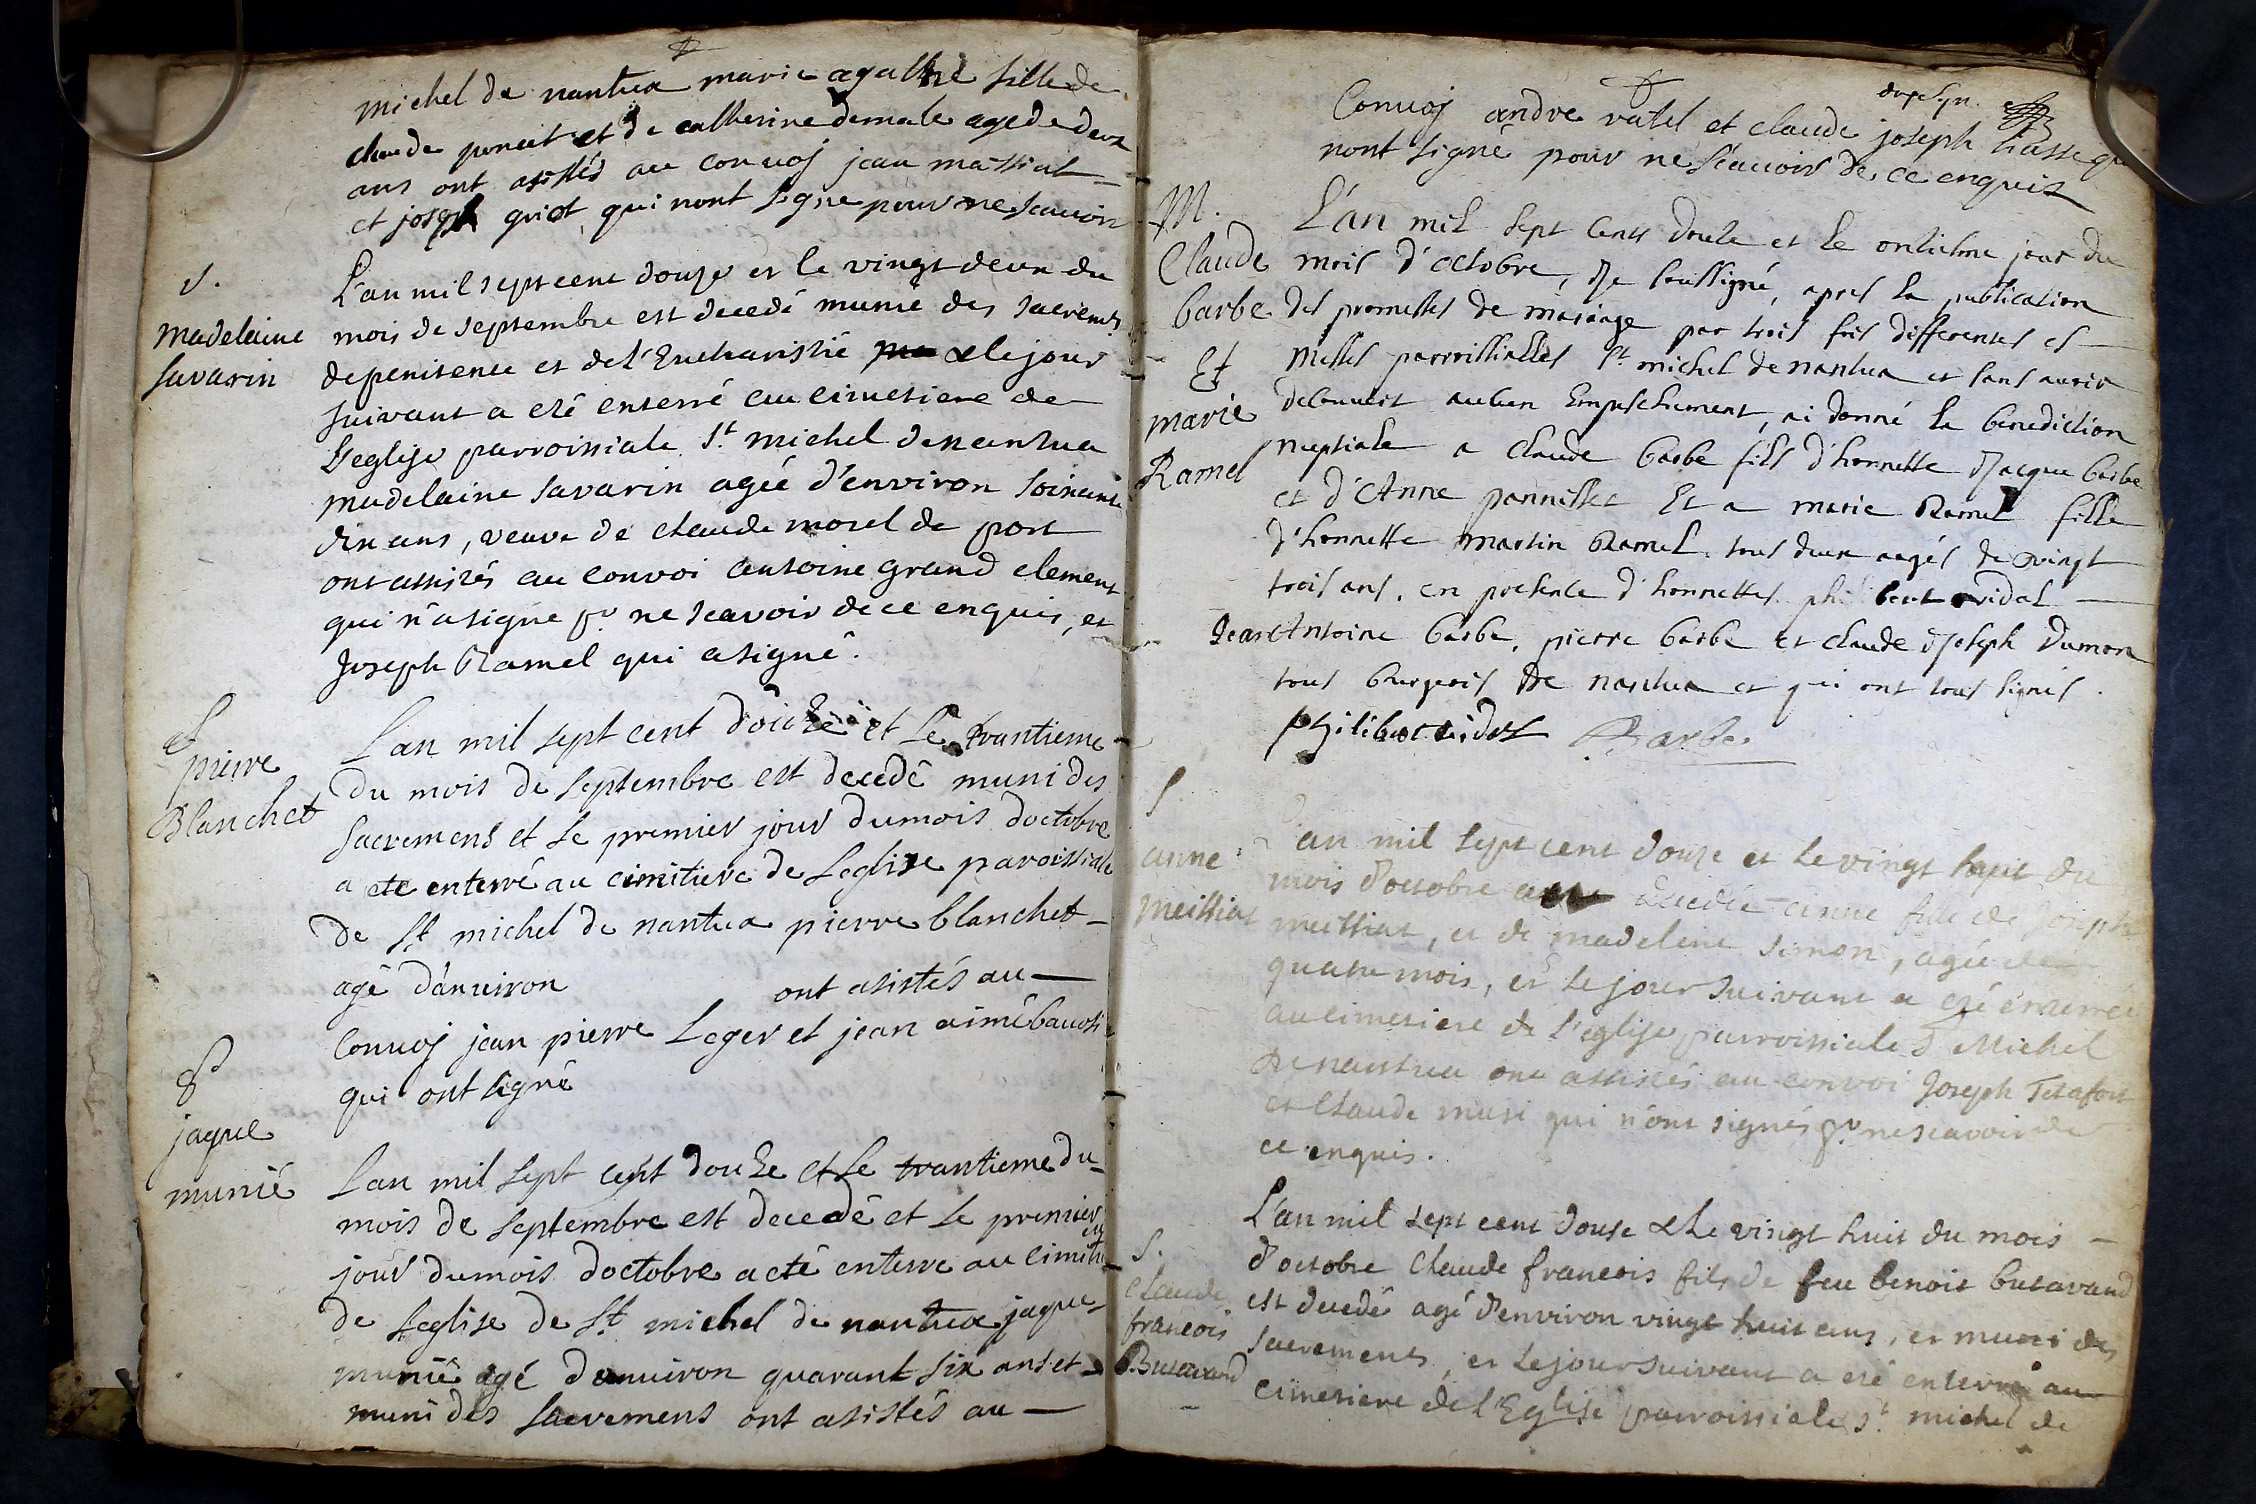 michel de nantua marie agathe fille de
claude poncet et de catherine demale agede deux
ans ont asistés au conuoj jean massiat
et joseph griot qui nont signe pour ne scauoir
S.
madelaine
savarin
L'an mil sept cent douze et le vingt deux du
mois de septembre est decedé munie des sacremens
de penitence et de l'Eucharistie & le jour
suivant a eté enterré au cimetiere de
L'eglise parroissiale St michel de nantua
madelaine savarin agée d'environ soixante
dix ans, veuve de claude morel de port
ont assistés au convoi antoine grand clement
qui n'a signé pr ne scavoir de ce enquis, et
Joseph Ramel qui a signé.
S
pierre
Blanchet
Lan mil sept cent douze et Le trantieme
du mois de septembre est decedé muni des
sacremens et le premier jour du mois doctobre
a ete enterré au cimitiere de Leglise paroissialle
de St michel de nantua pierre blanchet
agé d'anuiron ont asistés au
Conuoj jean pierre Leger et jean aimé
qui ont signé
S
jaque
munié
Lan mil sept cent douze et le trantieme du
mois de septembre est decedé et le premier
jour du mois doctobre a eté enterre au cimitie
de Leglise de St michel de nantua jaque
munié agé danuiron quarant six ans et
muni des sacremens ont asistés au
Conuoj andre ratel et claude joseph
nont signé pour ne scauoir de ce enquis
M.
Claude
barbe
Et
marie
Ramel
L'an mil sept cents douze et le onzieme jour du
mois d'octobre, Je soussigné, apres la publication
des promesses de mariage par trois fois differentes es
messes parroissialles St michel de nantua et sans avoir
decouvert aucun Empeschement, ai donné la benediction
nuptiale a claude barbe fils d'honnette Jacque barbe
et d'Anne Et a marie Ramel fille
d'honnette martin Ramel. tous deux aagés de vingt
trois ans. en presence d'honnettes philibert vidal
Jean Antoine barbe, pierre barbe et claude Joseph Dumon
tous bourgeois de nantua et qui ont tous signés.
philibert vidal Barbe
S.
anne
meissiat
L'an mil sept cent douze et le vingt huit du
mois d'octobre decedée anne fille de Joseph
meissiat, et de madeleine simon, agée de
quatre mois, et le jour suivant a eté enterrée
au cimetiere de l'eglise parroissiale St Michel
de nantua ont assistés au convoi Joseph
et claude musi qui n'ont signés pr ne scavoir de
ce enquis.
S.
Claude
francois
Butavand
L'an mil sept cent douse & le vingt huit du mois
d'octobre Claude francois fils de feu benoit butavand
est decedé agé d'environ vingt huit ans, et muni des
sacrements, et le jour suivant a eté enterré au
cimetiere de l'Eglise parroissiale St michel de